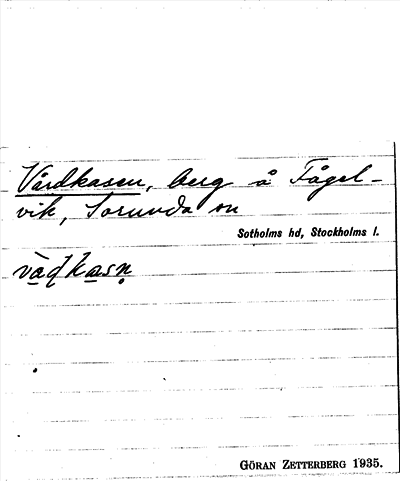 Vårdkasen, berg å Fågel-
vik, Sorunda sn
Sotholms hd, Stockholms l.
vàḍkasṇ
GÖRAN ZETTERBERG 1935.